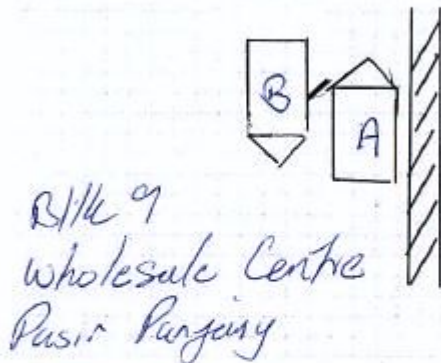 B
A
Blk 9
Wholesale Centre
Pasir Panjang